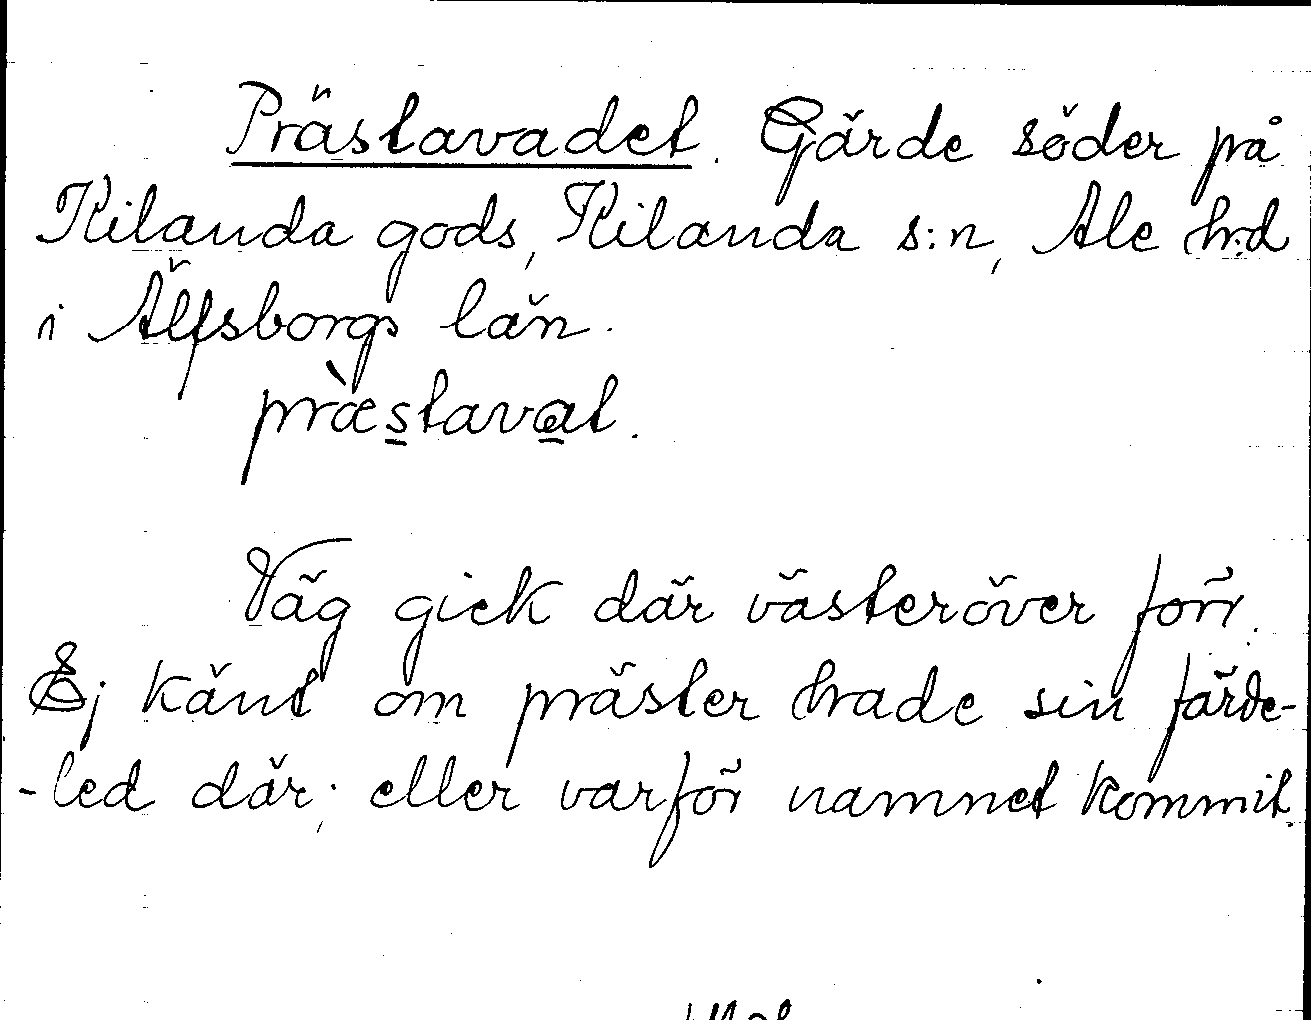 Prästavadet. Gärde söder på
Kilanda gods, Kilanda s:n, Ale h:d
i Älfsborgs län.
præ̀stavat.
Väg gick där västeröver förr.
Ej känt om präster hade sin färde-
-led där; eller varför namnet kommit.